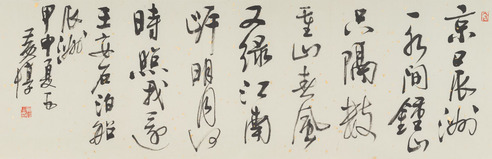 京口瓜洲
一水間鍾山
只隔數
重山春風
又綠江南
岸明月何
時照我還
王安石泊船
瓜洲
甲申夏五
黃惇